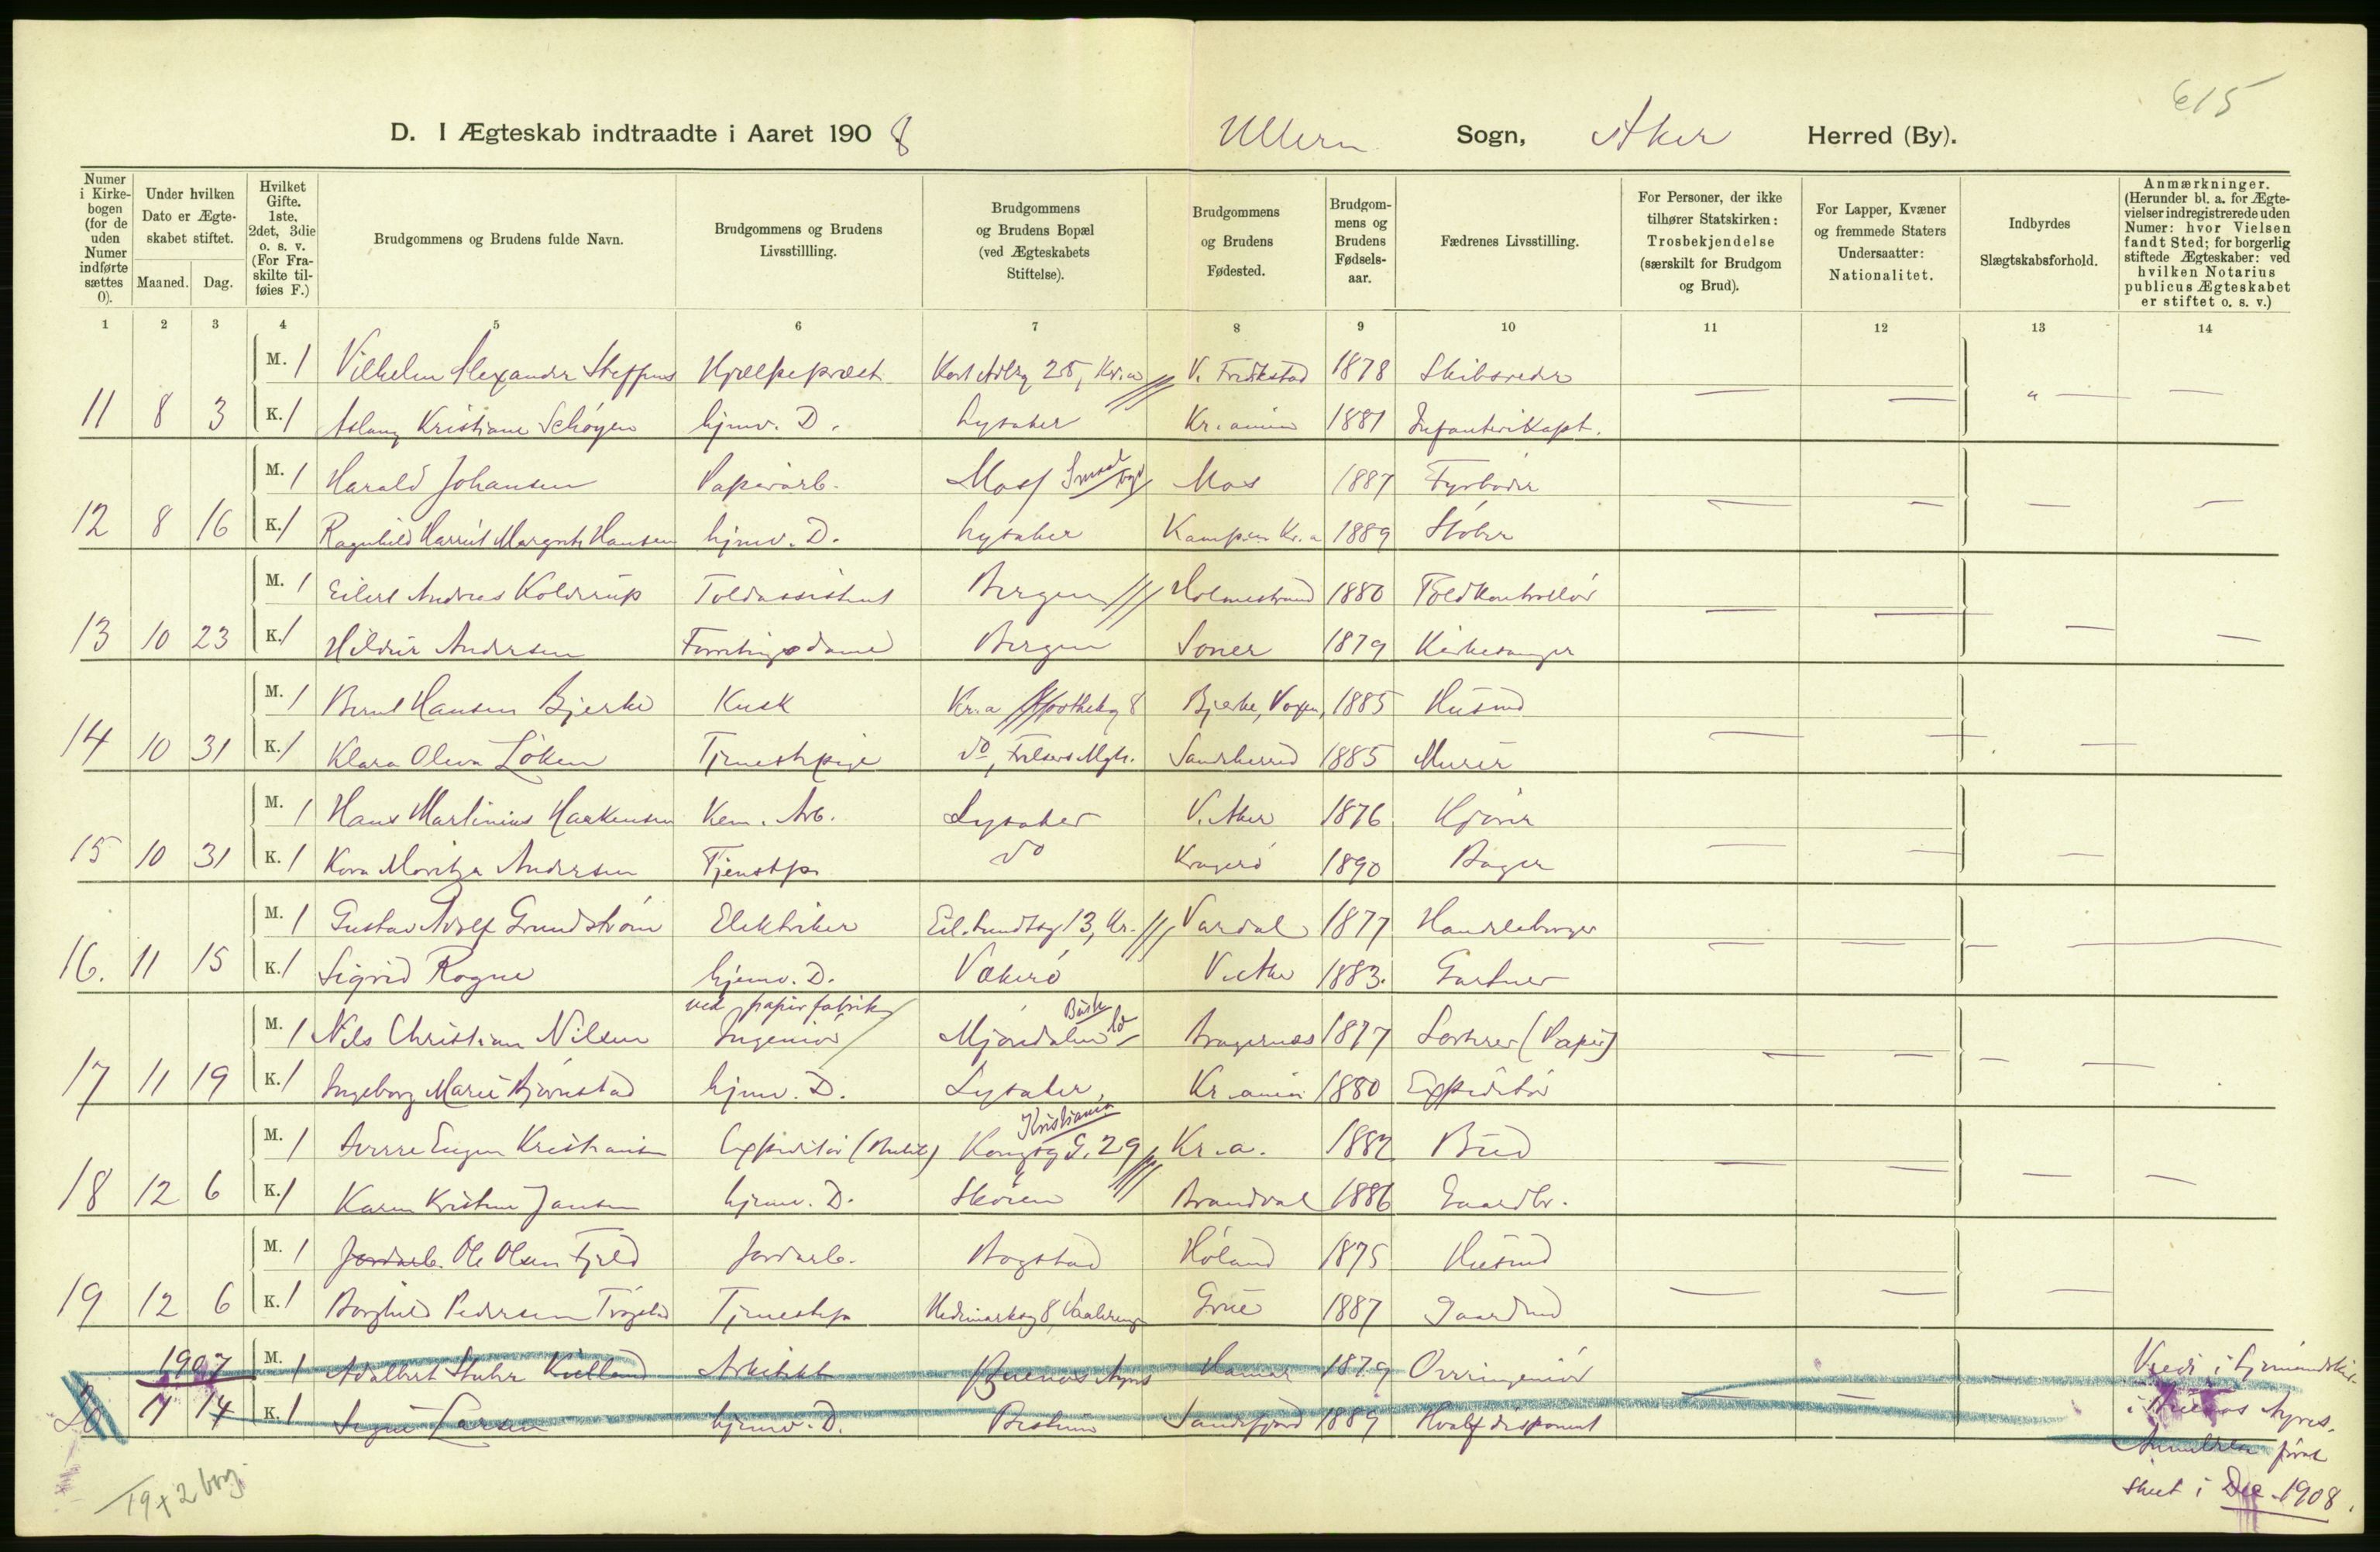 615
D. I Ægteskab indtraadte i Aaret 1908 Ullern Sogn, Aker Herred (By).
Numer i Kirkebogen (for de uden Numer indførte sættes 0).
Under hvilken Dato er Ægteskabet stiftet.
Maaned. Dag.
Hvilket Gifte. 1ste, 2det, 3die o. s. v. (For Fraskilte tilføies F.)
Brudgommens og Brudens fulde Navn.
Brudgommens og Brudens Livsstillling.
Brudgommens og Brudens Bopæl (ved Ægteskabets Stiftelse).
Brudgommens og Brudens Fødested.
Brudgommens og Brudens Fødselsaar.
Fædrenes Livsstilling.
For Personer, der ikke tilhører Statskirken: Trosbekjendelse (særskilt for Brudgom og Brud).
For Lapper, Kvæner og fremmede Staters Undersaatter: Nationalitet.
Indbyrdes Slægtskabsforhold.
Anmærkninger. (Herunder bl. a. for Ægtevielser indregistrerede uden Numer: hvor Vielsen fandt Sted; for borgerlig stiftede Ægteskaber: ved hvilken Notarius publicus Ægteskabet er stiftet o. s. v.)
1 2 3 4 5 6 7 8 9 10 11 12 13 14
M. 1 Vilhelm Alexander Steffens Hjælpeprest Karl Adlsg 25, Kr.a V. Fredrikstad 1878 Skibsreder
11 8 3 K. 1 Aslaug Kristiane Schøyen hjmv. D. Lysaker Kr.ania 1881 Infanterikapt.
M. 1 Harald Johansen Papirarb. Moss Mos 1887 Fyrbøder
12 8 16 K. 1 Ragnhild Harriet Margrete Hansen hjmv. D. Lysaker Kampen Kr.a 1889 Støber
M. 1 Eilert Andreas Koldrup Toldassistent Bergen Holmestrand 1880 Toldkontrollør
13 10 23 K. 1 Hildur Andersen Forretningsdame Bergen Soner 1879 Kirkesanger
M. 1 Bernt Hansen Bjerke Kusk Kr.a Apothekg 8 Bjerke, 1885 Husmd
14 10 31 K. 1 Klara Oleva Løken Tjenestepige do, Frelsers Mgt. Sandeherred 1885 Murer
M. 1 Hans Martinius Haakensen Kem. Arb. Lysaker V. Aker 1876
15 10 31 K. 1 Kora Moritza Andersen Tjenestp. do Kragerø 1890 Bager
M. 1 Gustav Adolf Grundstrøm Elektriker Eil. Sundtsg 13, Kr. Vardal 1877 Handelsborger
16. 11 15 K. 1 Sigrid Rogne hjemv. D. Vækerø V. Aker 1883. Gartner
ved papirfabrik Busk
M. 1 Nils Christian Nilsen Ingeniør Mjøndalen Bragernæs 1877 Sorterer (Papir)
17 11 19 K. 1 Ingeborg Marie Bjørnstad hjmv. D. Lysaker, Kr.ania 1880 Expeditør
Kristiania
M. 1 Sverre Eugen Kristiansen Expeditør Kongsg G. 29 Kr.a. 1882 Bud
18 12 6 K. 1 Karen Kristine Jansen hjemv. D. Skøien Brandval 1886 Gaardbr.
M. 1 Jordarb. Ole Olsen Fjeld Jordarb. Bogstad Høland 1875 Husmd
19 12 6 K. 1 Borghild Pedersen Trøgstad Tjenestep Hedemarksg 8, Vaalereng Grue 1887 Gaardmd
1907 M. 1 Adalbert Stuhr Kielland Arkitekt Buenos Ayres Hamar 1879 Overingeniør Viede i
20 7 14 K. 1 Signe Larsen hjemv. D. Bestum Sandefjord 1889 Hvalfdisponent i Buenos Ayres.
Anmeldelse først
skeet i Dec. 1908.
19 + 2 borg.